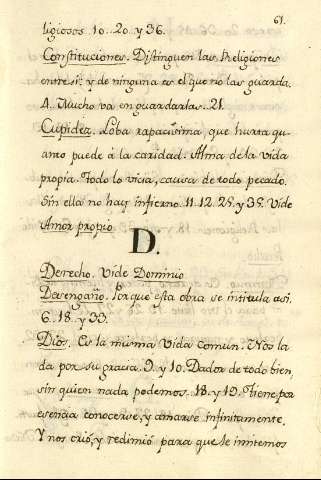 61.
ligiosos 10. 20. y 36.
Constituciones. Distinguen las Religiones
entre si: y de ninguna es el que no las guarda.
4. Mucho va en guardarlas. 21.
Cupidez. Loba rapacissima, que hurta qu
anto puede à la caridad. Alma de la vida
propia. Todo lo vicia, causa de todo pecado.
Sin ella no hay infierno. 11. 12. 28. y 38. Vide
Amor propio
D.
Derecho. Vide Dominio
Desengaño. Porque esta obra se intitula asi.
6. 18. y 33.
Dios. Es la misma Vida comun. Nos la
da por su gracia. 9. y 10. Dador de todo bien,
sin quien nada podemos. 18. y 19. Tiene por
esencia conocerse, y amarse infinitamente.
Y nos crió, y redimió para que le imitemos